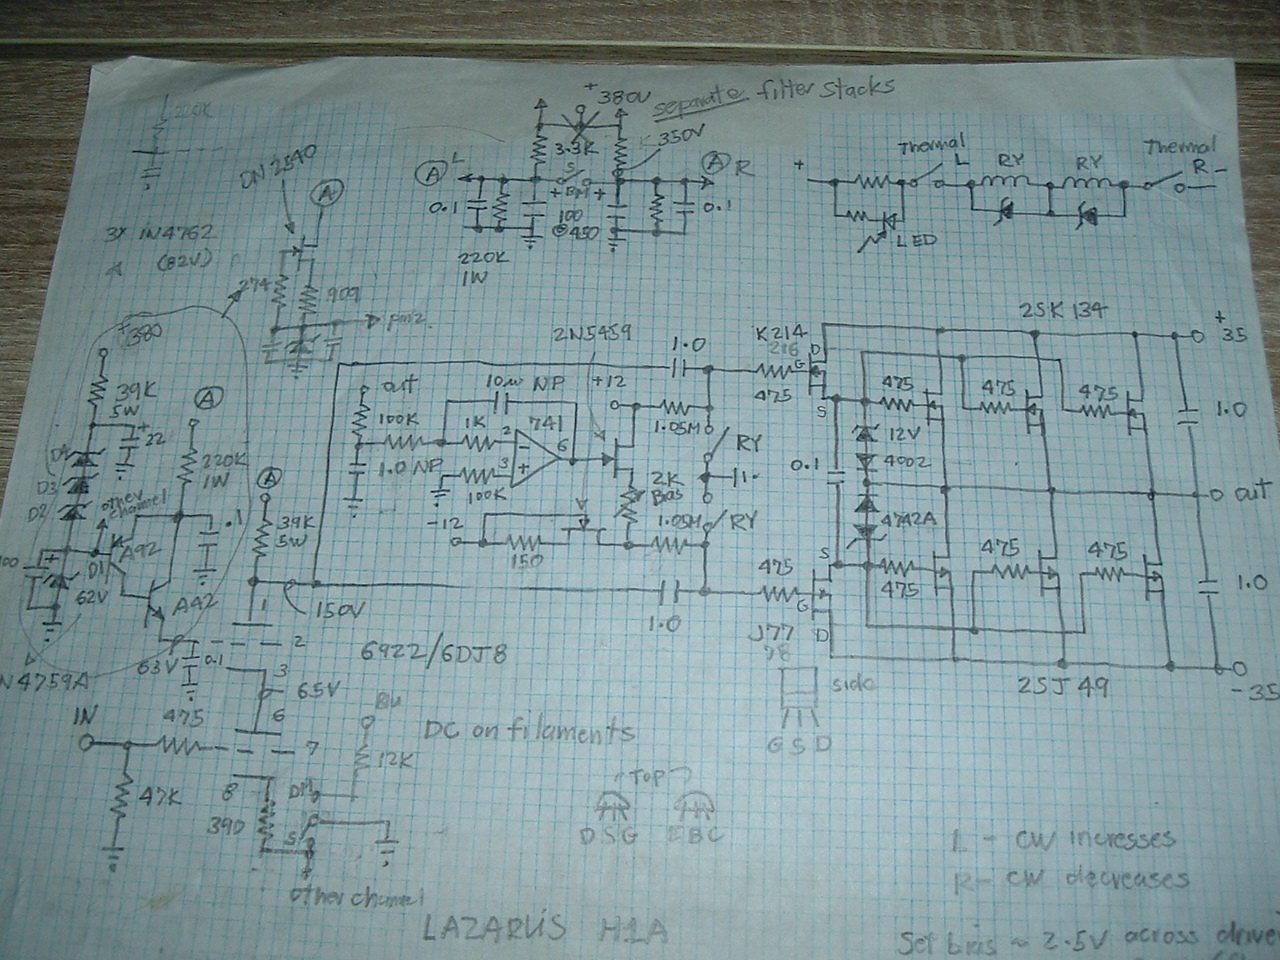 +380V
separate filter stacks
220K
3.3K
350V
Thermal
L
RY
RY
Thermal
R -
+
DN 2540
A
A L
S
A R
0.1
+ BM +
100
@450
0.1
LED
3x IN4762
(82V)
220K
1W
274
909
pin2
2SK 134
+35
2N5459
K214
216
D
G
S
+380
39K
5W
22
A
out
10μ NP
+12
1.0
475
475
475
475
1.0
100K
1K
741
2
3
6
1.05M
RY
12V
D4
D3
D2
220K
1W
A
1.0 NP
100K
2K
Bias
1.
0.1
4002
out
other
channel
.1
39K
5W
-12
1.05M
RY
4742A
100
A92
D1
62V
A42
150
475
S
475
475
475
1.0
1
150V
G
D
1.0
J77
78
2
6922/6DJ8
63V
0.1
3
65V
N4759A
2SJ 49
-35
side
G S D
IN
475
6
7
12K
DC on filaments
47K
8
390
S
TOP
D S G
E B C
other channel
L - CW increases
R - CW decreases
LAZARUS H1A
Set bias ~ 2.5V across drive